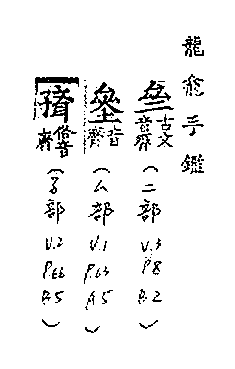 龍龕手鑑
古文音齊（二部 V.3 P8 B.2）
音齊（厶部 V.1 P.63 A.5）
俗音齊（子部 V.2 P.66 A.5）